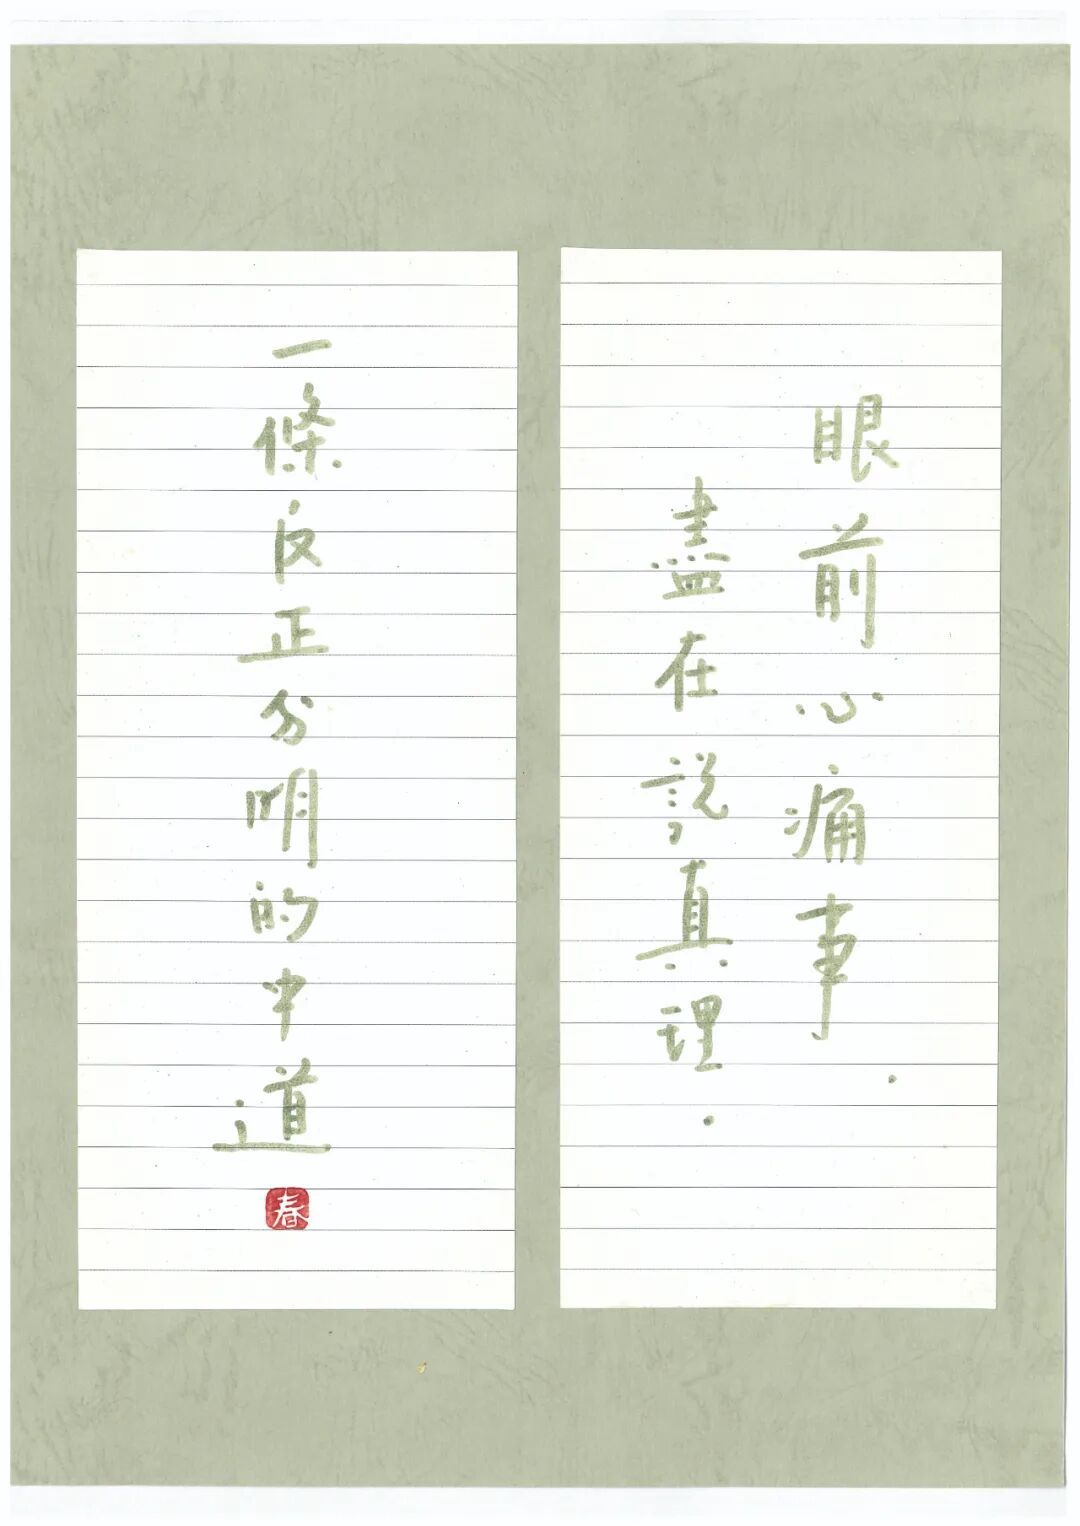 眼前心痛事.
盡在說真理.
一條反正分明的中道
春